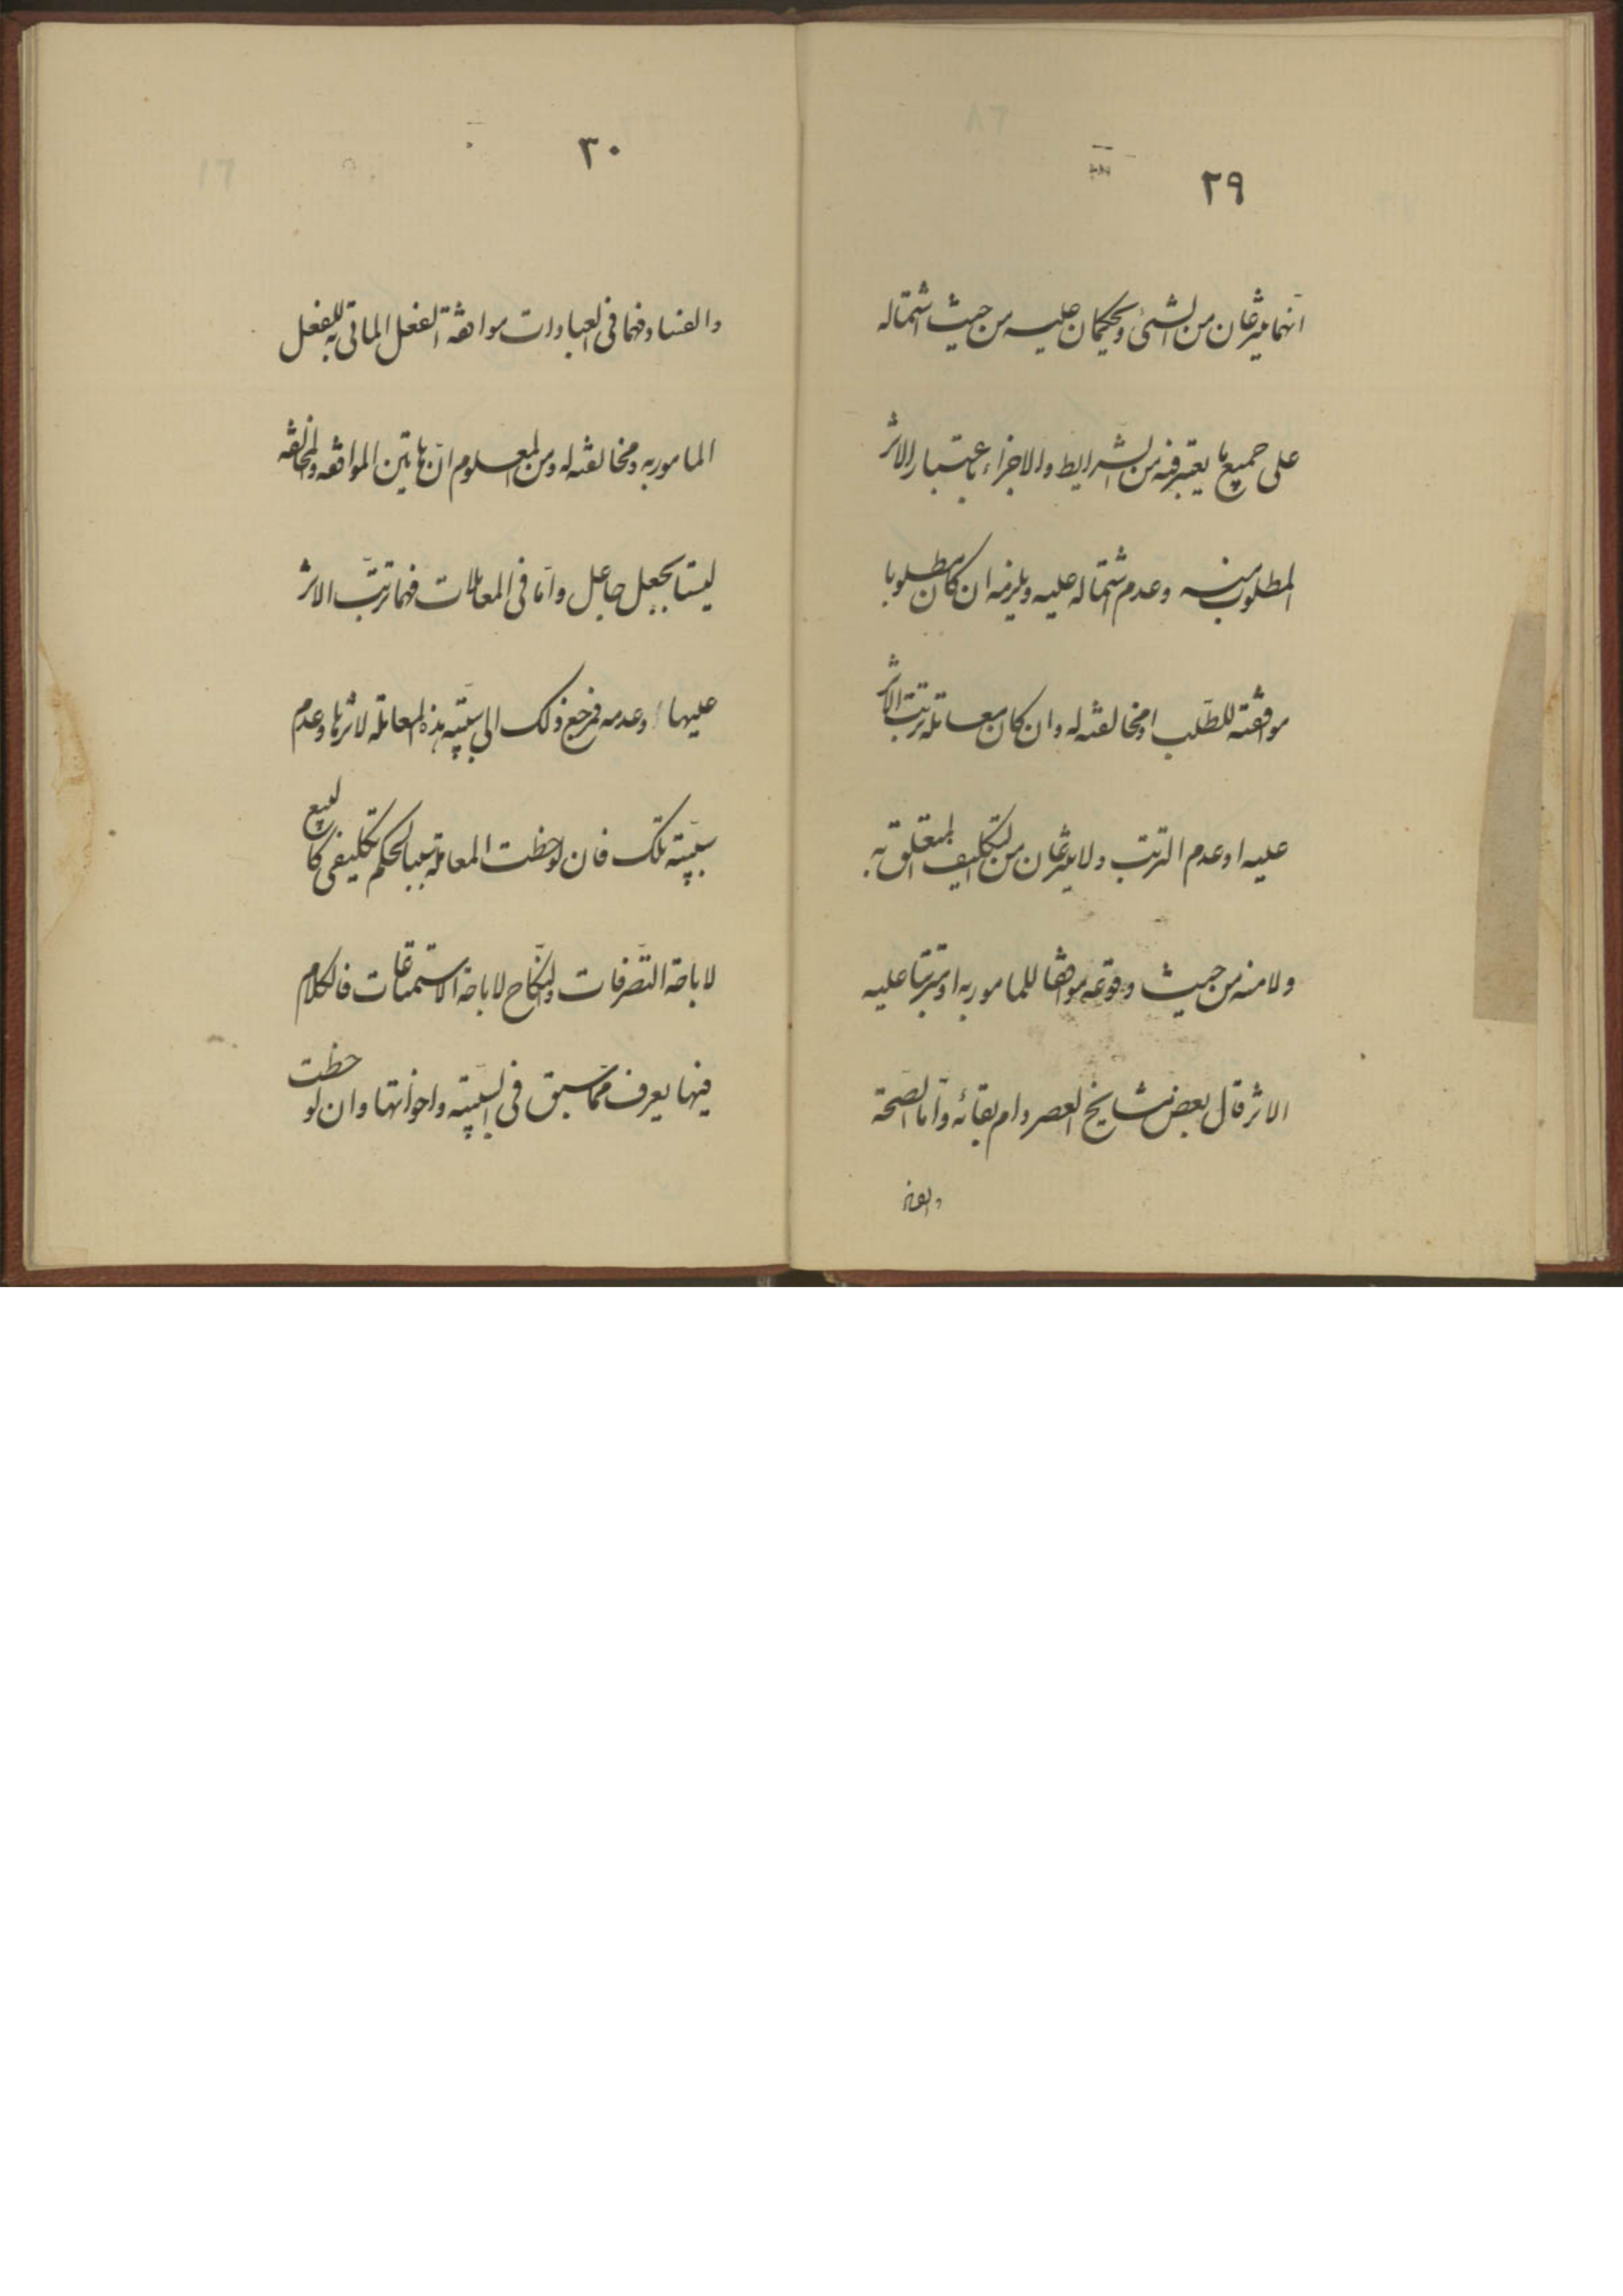 ٢٩
انّهما ينتزعان من الشئ ويحكمان عليه من حيث اشتماله
على جميع ما يعتبر فيه من الشرايط والاجزاء باعتبار الاثر
المطلوب منه وعدم اشتماله عليه ويلزمه ان كان مطلوبا
موافقته للطّلب او مخالفته له وان كان معاملة ترتب الاثر
عليه او عدم الترتب ولا ينتزعان من التكليف المتعلق به
ولا منه من حيث وقوعه موافقا للمامور به او مترتبا عليه
الاثر قال بعض مشايخ العصر دام بقائه وامّا الصّحة
٣٠
والفساد فهما فى العبادات موافقة الفعل الماتى به للفعل
المامور به ومخالفته له ومن المعلوم انّ هاتين الموافقه والمخالفه
ليستا بجعل جاعل وامّا فى المعاملات فهما ترتّب الاثر
عليها وعدمه فمرجع ذلك الى سببيّته هذه المعاملة لاثرها وعدم
سببيّته تلك فان لوحظت المعاملة سببا لحكم تكليفى كالبيع
لاباحة التصّرفات والنّكاح لاباحة الاستمتاعات فالكلام
فيها يعرف ممّا سبق فى السّببيّته واخواتها وان لوحظت